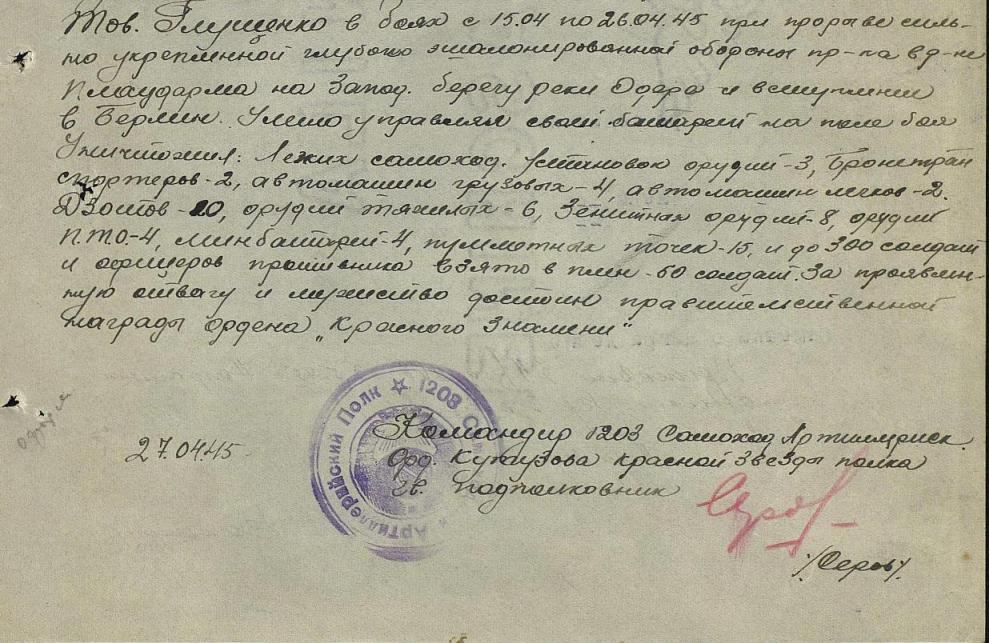 Тов. Глущенко в боях с 15.04 по 26.04.45 при прорыве силь-
но укрепленной глубоко эшалонированной обороны пр-ка в р-не
на Запад. берегу реки Одера и вступлении
в Берлин. Умело управлял своей батареей на поле боя
Уничтожил: Легких самоход. установок орудий-3, Бронетран
спортеров-2, автомашин грузовых-4, автомашин легков-2.
ДЗотов-10, орудий тяжелых-6, Зенитная орудий-8, орудий
П.Т.О-4, минбатарей-4, пулеметных точек-15, и до 300 солдат
и офицеров противника взято в плен-60 солдат. За проявлен-
ную отвагу и мужество достоин правительственной
награды ордена „Красного Знамени"
27.04.45
Командир 1203 Самоход Артиллерийск
Орд. Кутузова красной Звезды полка
Гв. подполковник
Серов
/Серов/
Артиллерийский Полк ☆ 1203